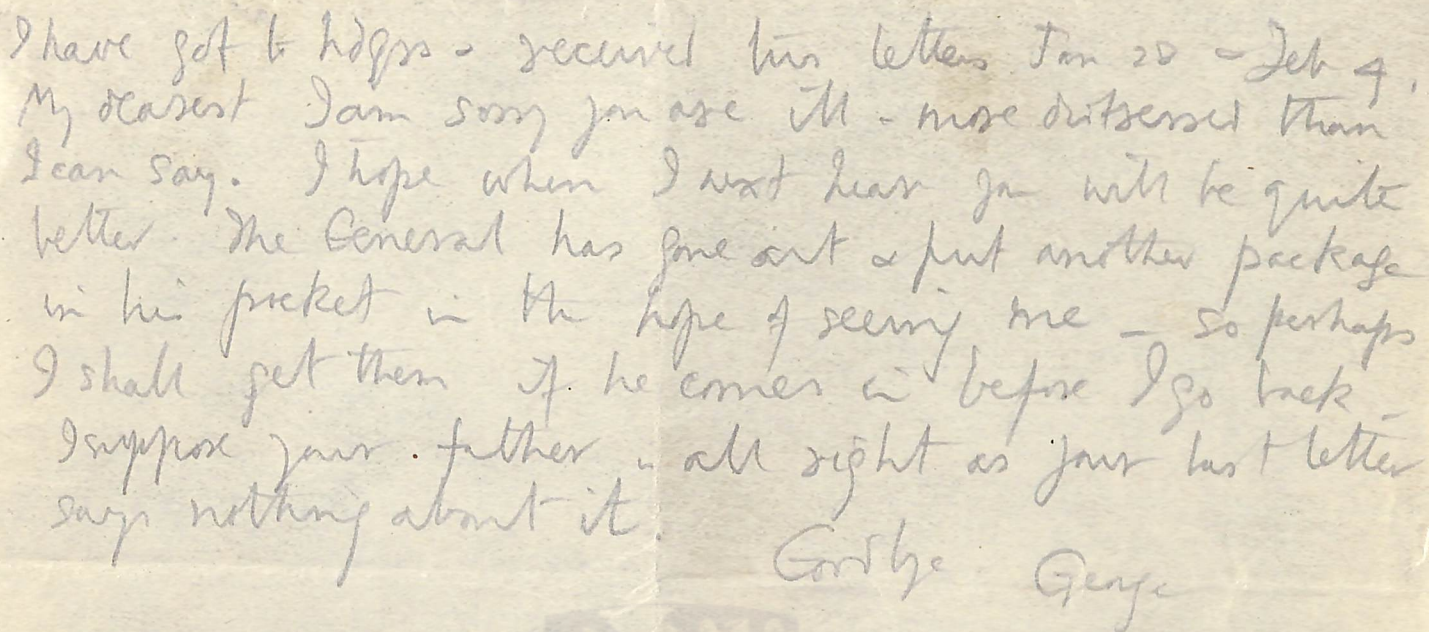 I have got to hdqrs & received two letters Jan 28 & Feb 4.
My dearest I am sorry you are ill & more distressed than
I can say. I hope when I next hear you will be quite
better. The General has gone out & put another package
in his pocket in the hope of seeing me — so perhaps
I shall get them if he comes in before I go back –
I suppose your father is all right as your last letter
says nothing about it.
Goodbye George